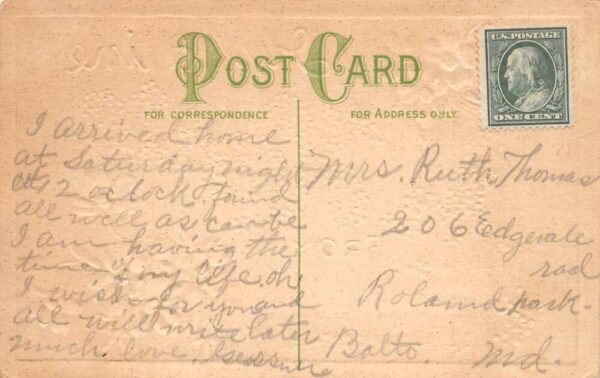 POST CARD
U.S. POSTAGE
ONE CENT
FOR CORRESPONDENCE
FOR ADDRESS ONLY.
I arrived home
at Saturday night
at 2 oclock found
all well as can be
I am having the
time of my life oh
I wish for you and
all will write later
much love.
Mrs. Ruth Thomas
206 Edgevale
road
Roland park-
Balto. Md.